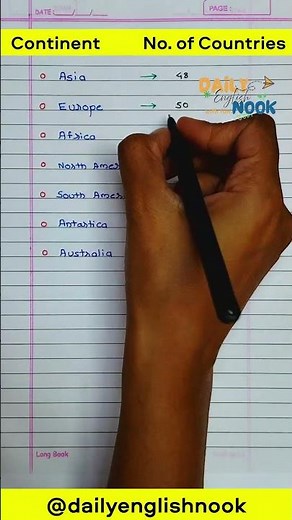 DATE:
PAGE:
Continent No. of Countries
Asia → 48
DAILY
English
NOOK
Europe → 50
Africa
North Amer
South Amer
Antartica
Australia
Long Book
@dailyenglishnook